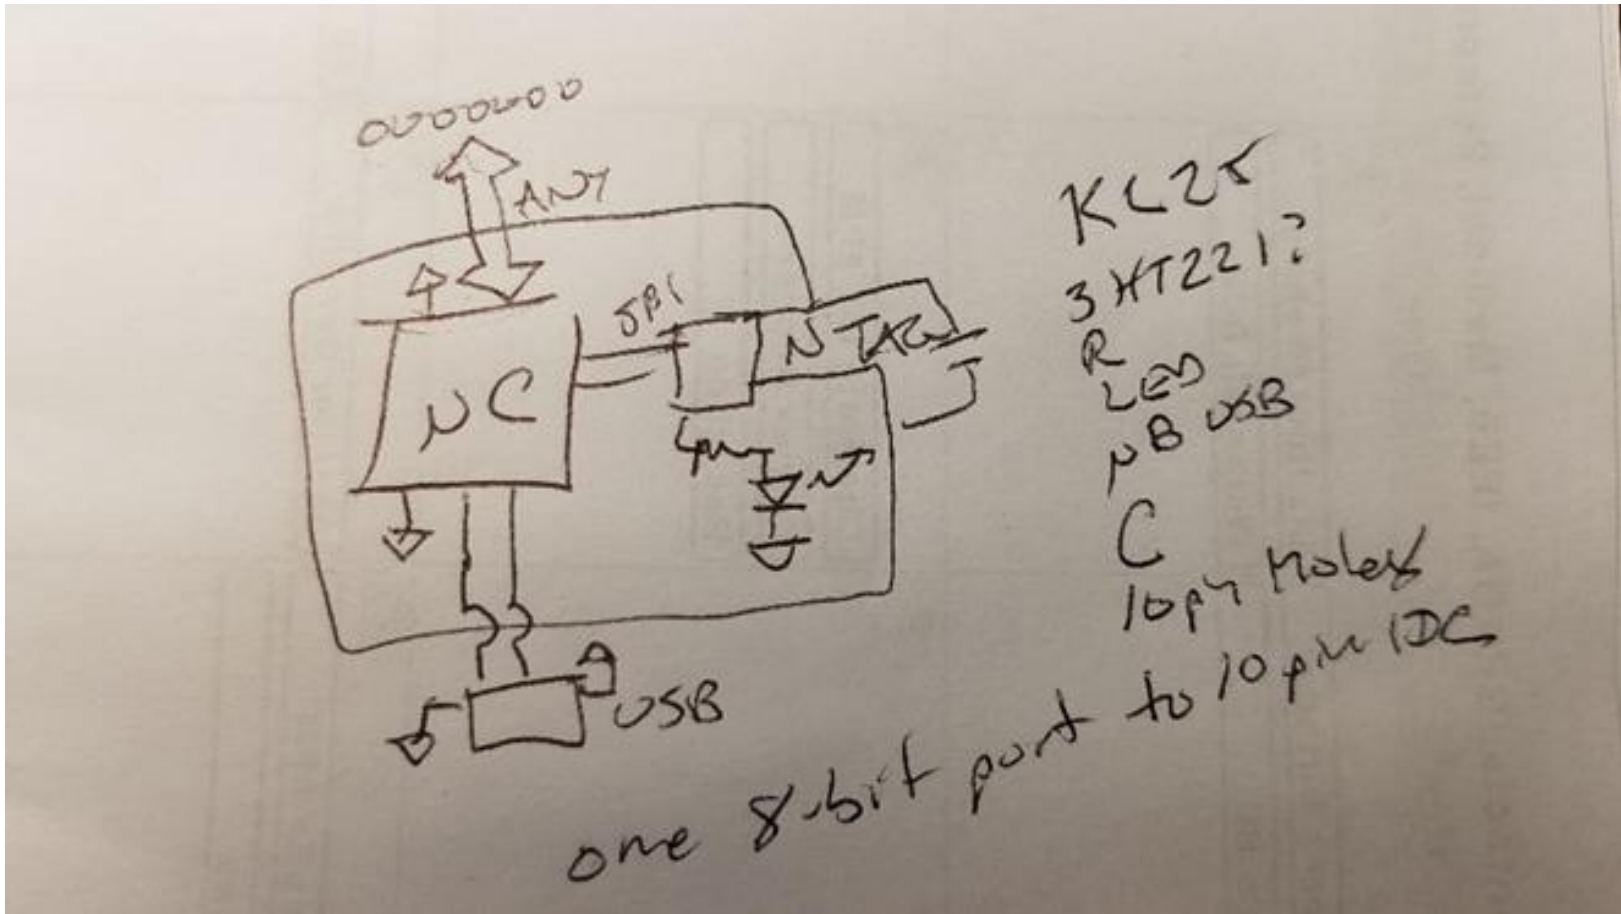 ANY
SPI
NTAG
µC
USB
KL25
3HT221?
R
LED
µB USB
C
10pin Molex
one 8-bit port to 10 pin IDC